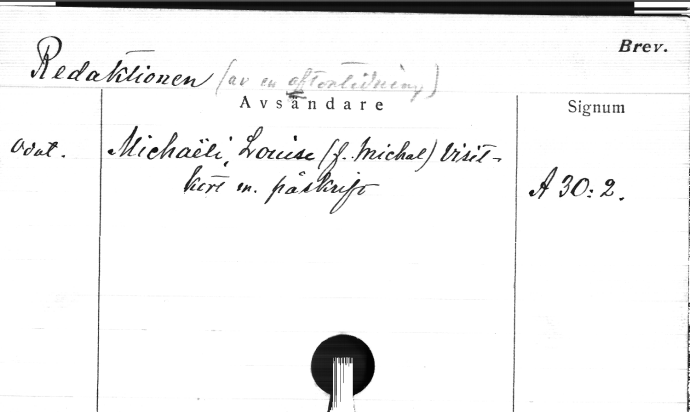 Brev.
Redaktionen (av en aftontidning)
Avsändare
Signum
Odat.
Michaëli, Louise (f. Michal) Visit-
kort m. påskrift
A 30:2.